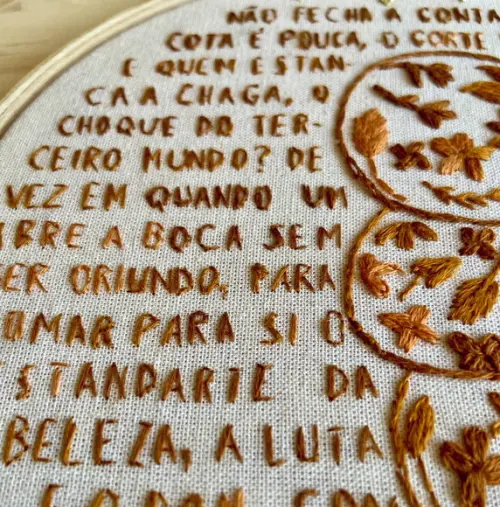 NÃO FECHA A CONTA
COTA É POUCA, O CORTE
E QUEM ESTAN-
CA A CHAGA, O
CHOQUE DO TER-
CEIRO MUNDO? DE
VEZ EM QUANDO UM
BRE A BOCA SEM
ER ORIUNDO, PARA
OMAR PARA SI O
STANDARTE DA
BELEZA, A LUTA